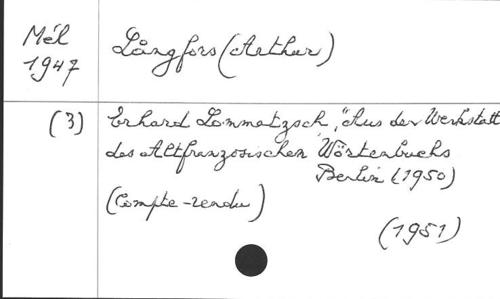 Mél
1947
Långfors (Arthur)
(3)
Erhard Lommatzsch, "Aus der Werkstatt
des Altfranzösischen Wörterbuchs
Berlin (1950)
(Compte-rendu)
(1951)